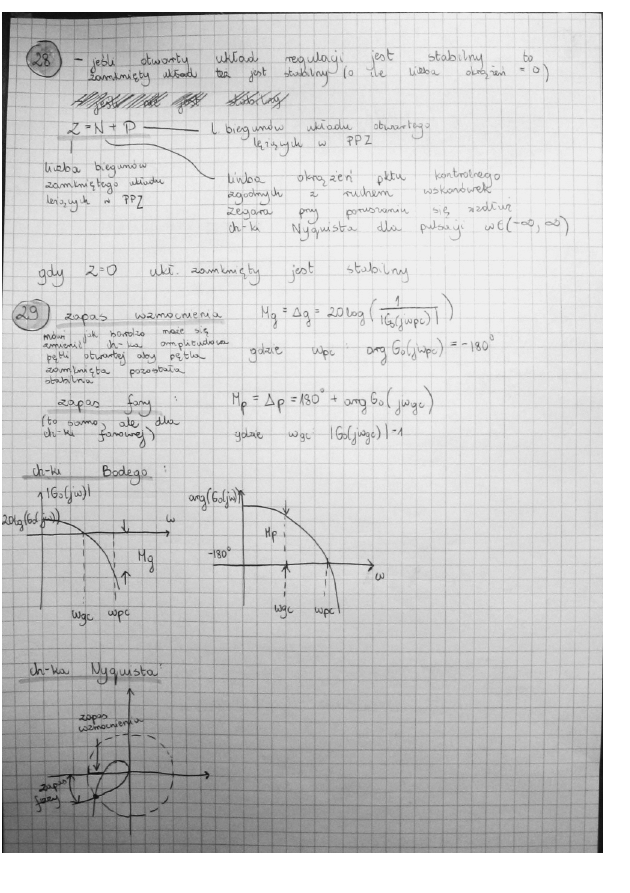 28 - jeśli otwarty układ regulacji jest stabilny to
zamknięty układ też jest stabilny (o ile liczba okrążeń = 0)
Z = N + P
l. biegunów układu otwartego
leżących w PPZ
liczba biegunów
zamkniętego układu
leżących w PPZ
liczba okrążeń pktu kontrolnego
zgodnych z ruchem wskazówek
zegara przy poruszaniu się wzdłuż
ch-ki Nyquista dla pulsacji ω∈(-∞, ∞)
gdy Z=0 ukł. zamknięty jest stabilny
29 zapas wzmocnienia
Mg = Δg = 20log(1/|G0(jωpc)|)
mówi jak bardzo może się
zmienić ch-ka amplitudowa
pętli otwartej aby pętla
zamknięta pozostała
stabilna
gdzie ωpc : arg G0(jωpc) = -180°
zapas fazy :
(to samo, ale dla
ch-ki fazowej)
Mp = Δp = 180° + arg G0(jωgc)
gdzie ωgc |G0(jωgc)| = 1
ch-ki Bodego :
|G0(jω)|
20lg(G0(jω))
ω
Mg
ωgc ωpc
arg(G0(jω))
Mp
-180°
ω
ωgc ωpc
ch-ka Nyquista:
zapas
wzmocnienia
zapas
fazy